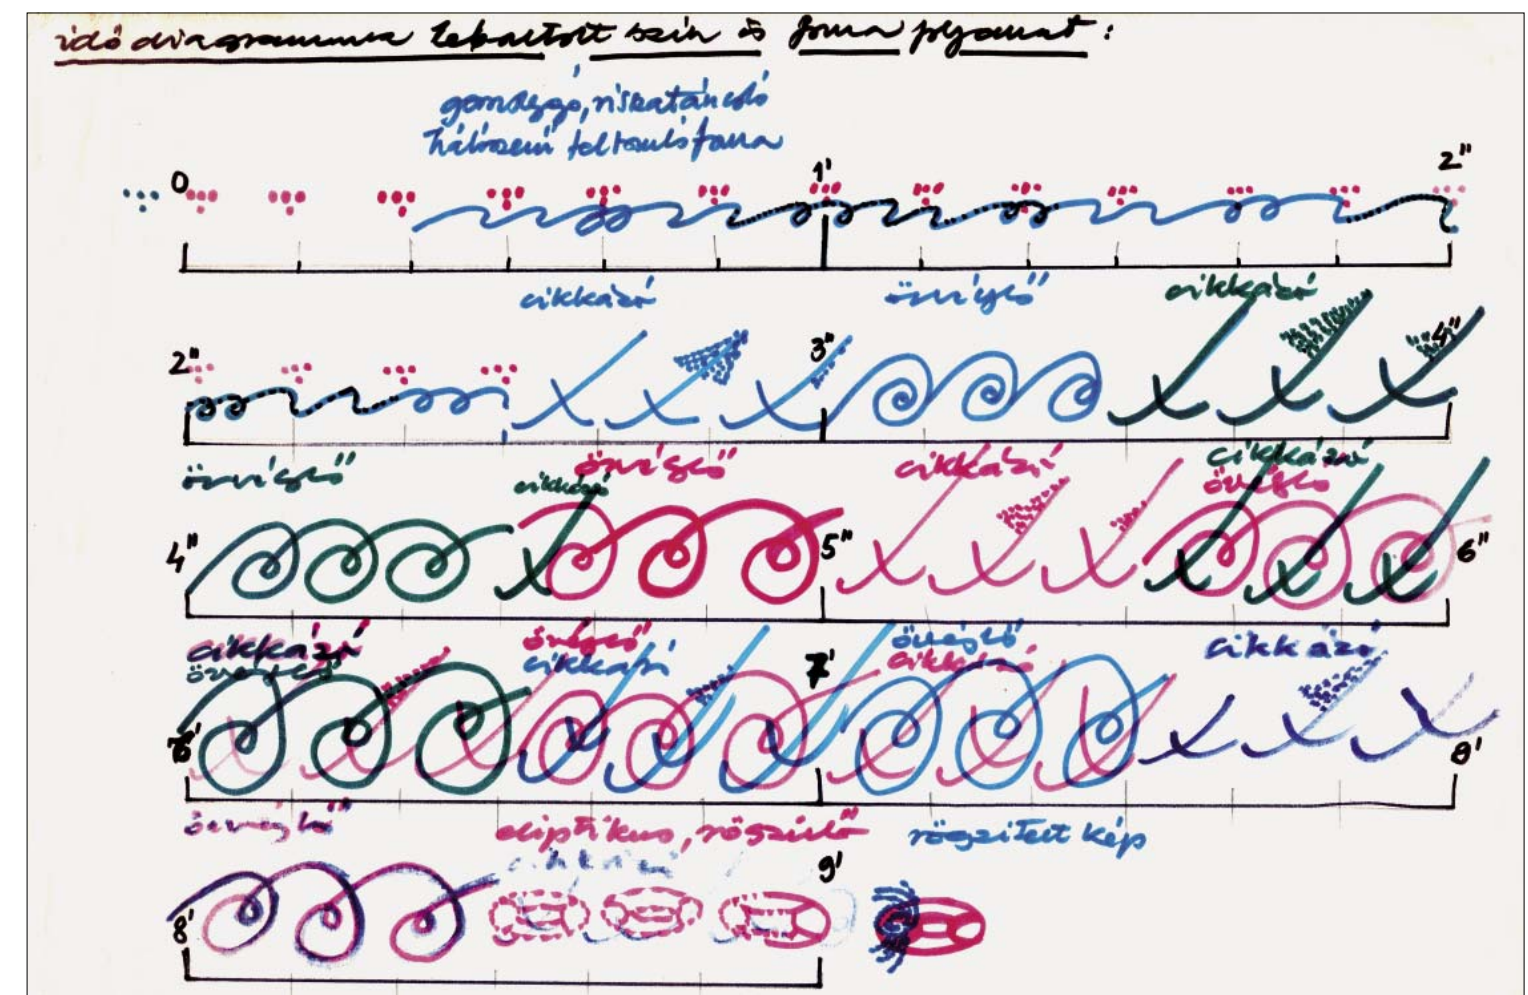 idődiagramma lebontott szín és forma folyamat:
0 1' 2"
cikkázó örvénylő cikkázó
2" 3" 4"
örvénylő cikkázó örvénylő cikkázó cikkázó
örvénylő
4" 5" 6"
cikkázó örvénylő örvénylő cikkázó
örvénylő cikkázó cikkázó
6' 7' 8'
örvénylő eliptikus, rögzülő rögzített kép
cikkázó
8' 9'